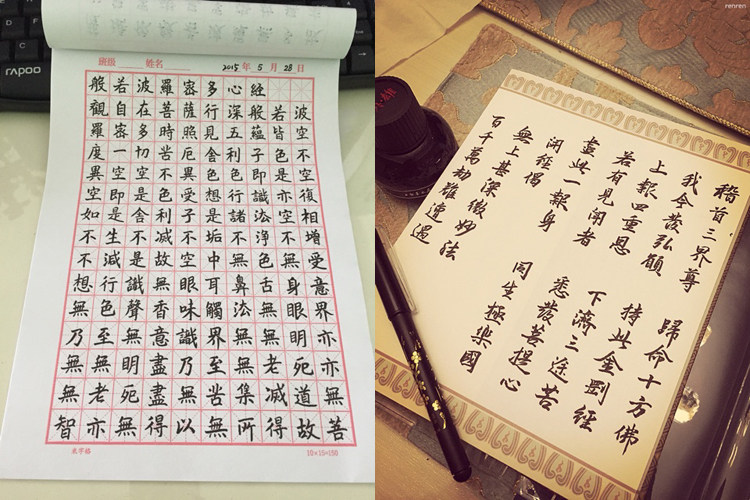 rapoo
班級 姓名 2015年5月28日
般若波羅蜜多心經
觀自在菩薩行深般若波
羅蜜多時照見五蘊皆空
度一切苦厄舍利子色不
異空空不異色色即是空
空即是色受想行識亦復
如是舍利子是諸法空相
不生不滅不垢不淨不增
不減是故空中無色無受
想行識無眼耳鼻舌身意
無色聲香味觸法無眼界
乃至無意識界無無明亦
無無明盡乃至無老死亦
無老死盡無苦集滅道無
智亦無得以無所得故菩
米字格 10×15=150
renren
稽首三界尊 歸命十方佛
我今發弘願 持此金剛經
上報四重恩 下濟三途苦
若有見聞者 悉發菩提心
盡此一報身 同生極樂國
開經偈
無上甚深微妙法
百千萬劫難遭遇